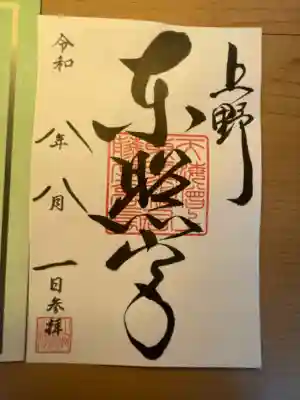 上野
東照宮
令和八年八月一日参拝